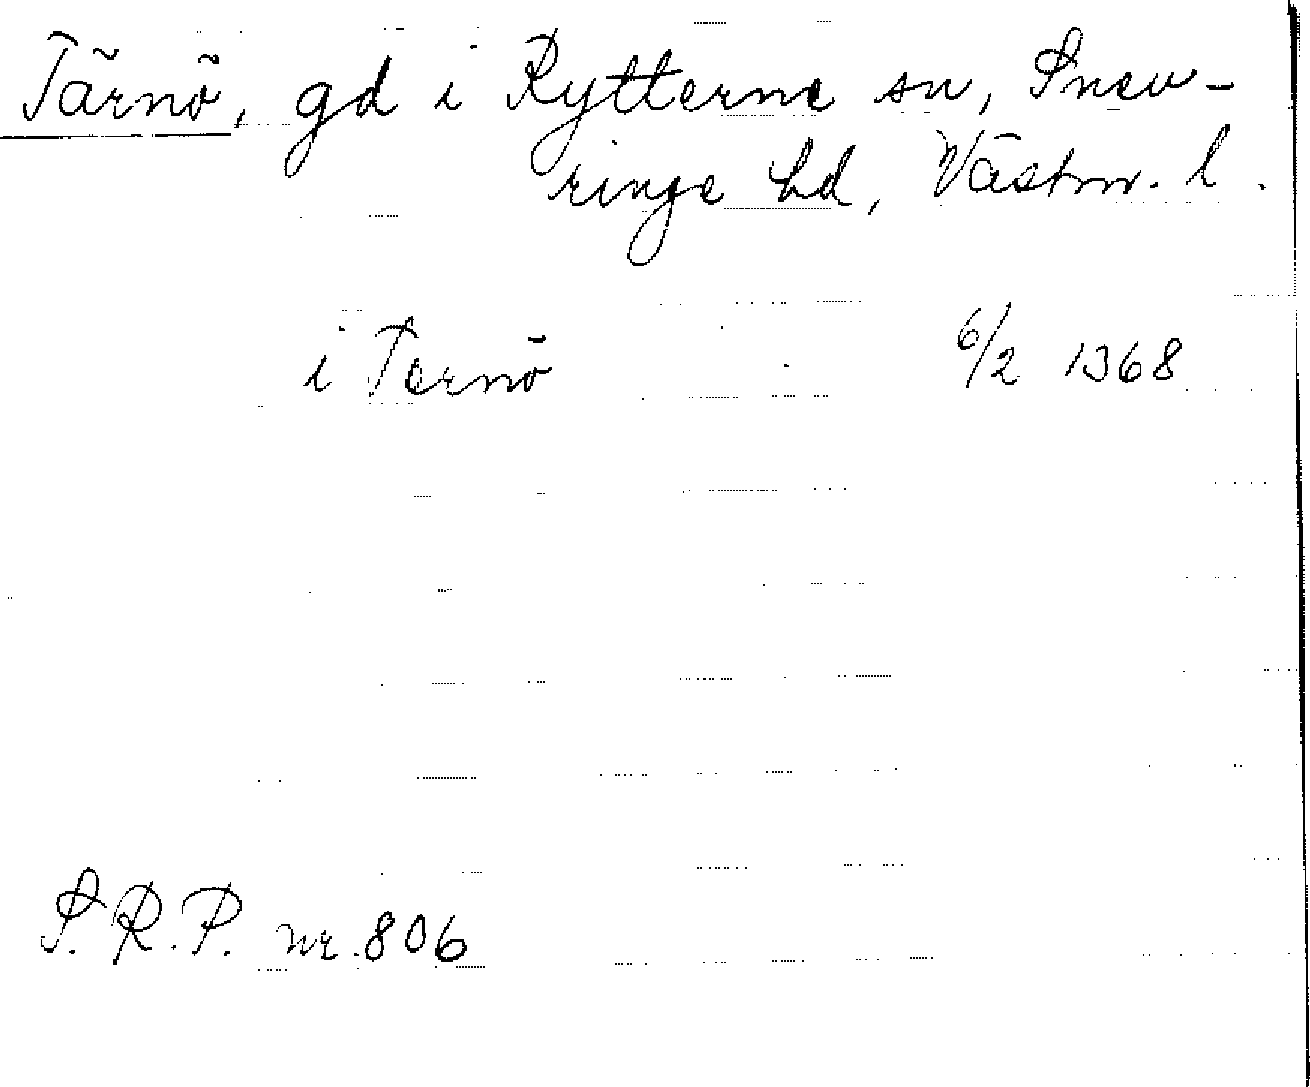 Tärnö, gd i Rytterne sn, Snev-
ringe hd, Västm. l.
i Ternö 6/2 1368
S.R.P. nr. 806